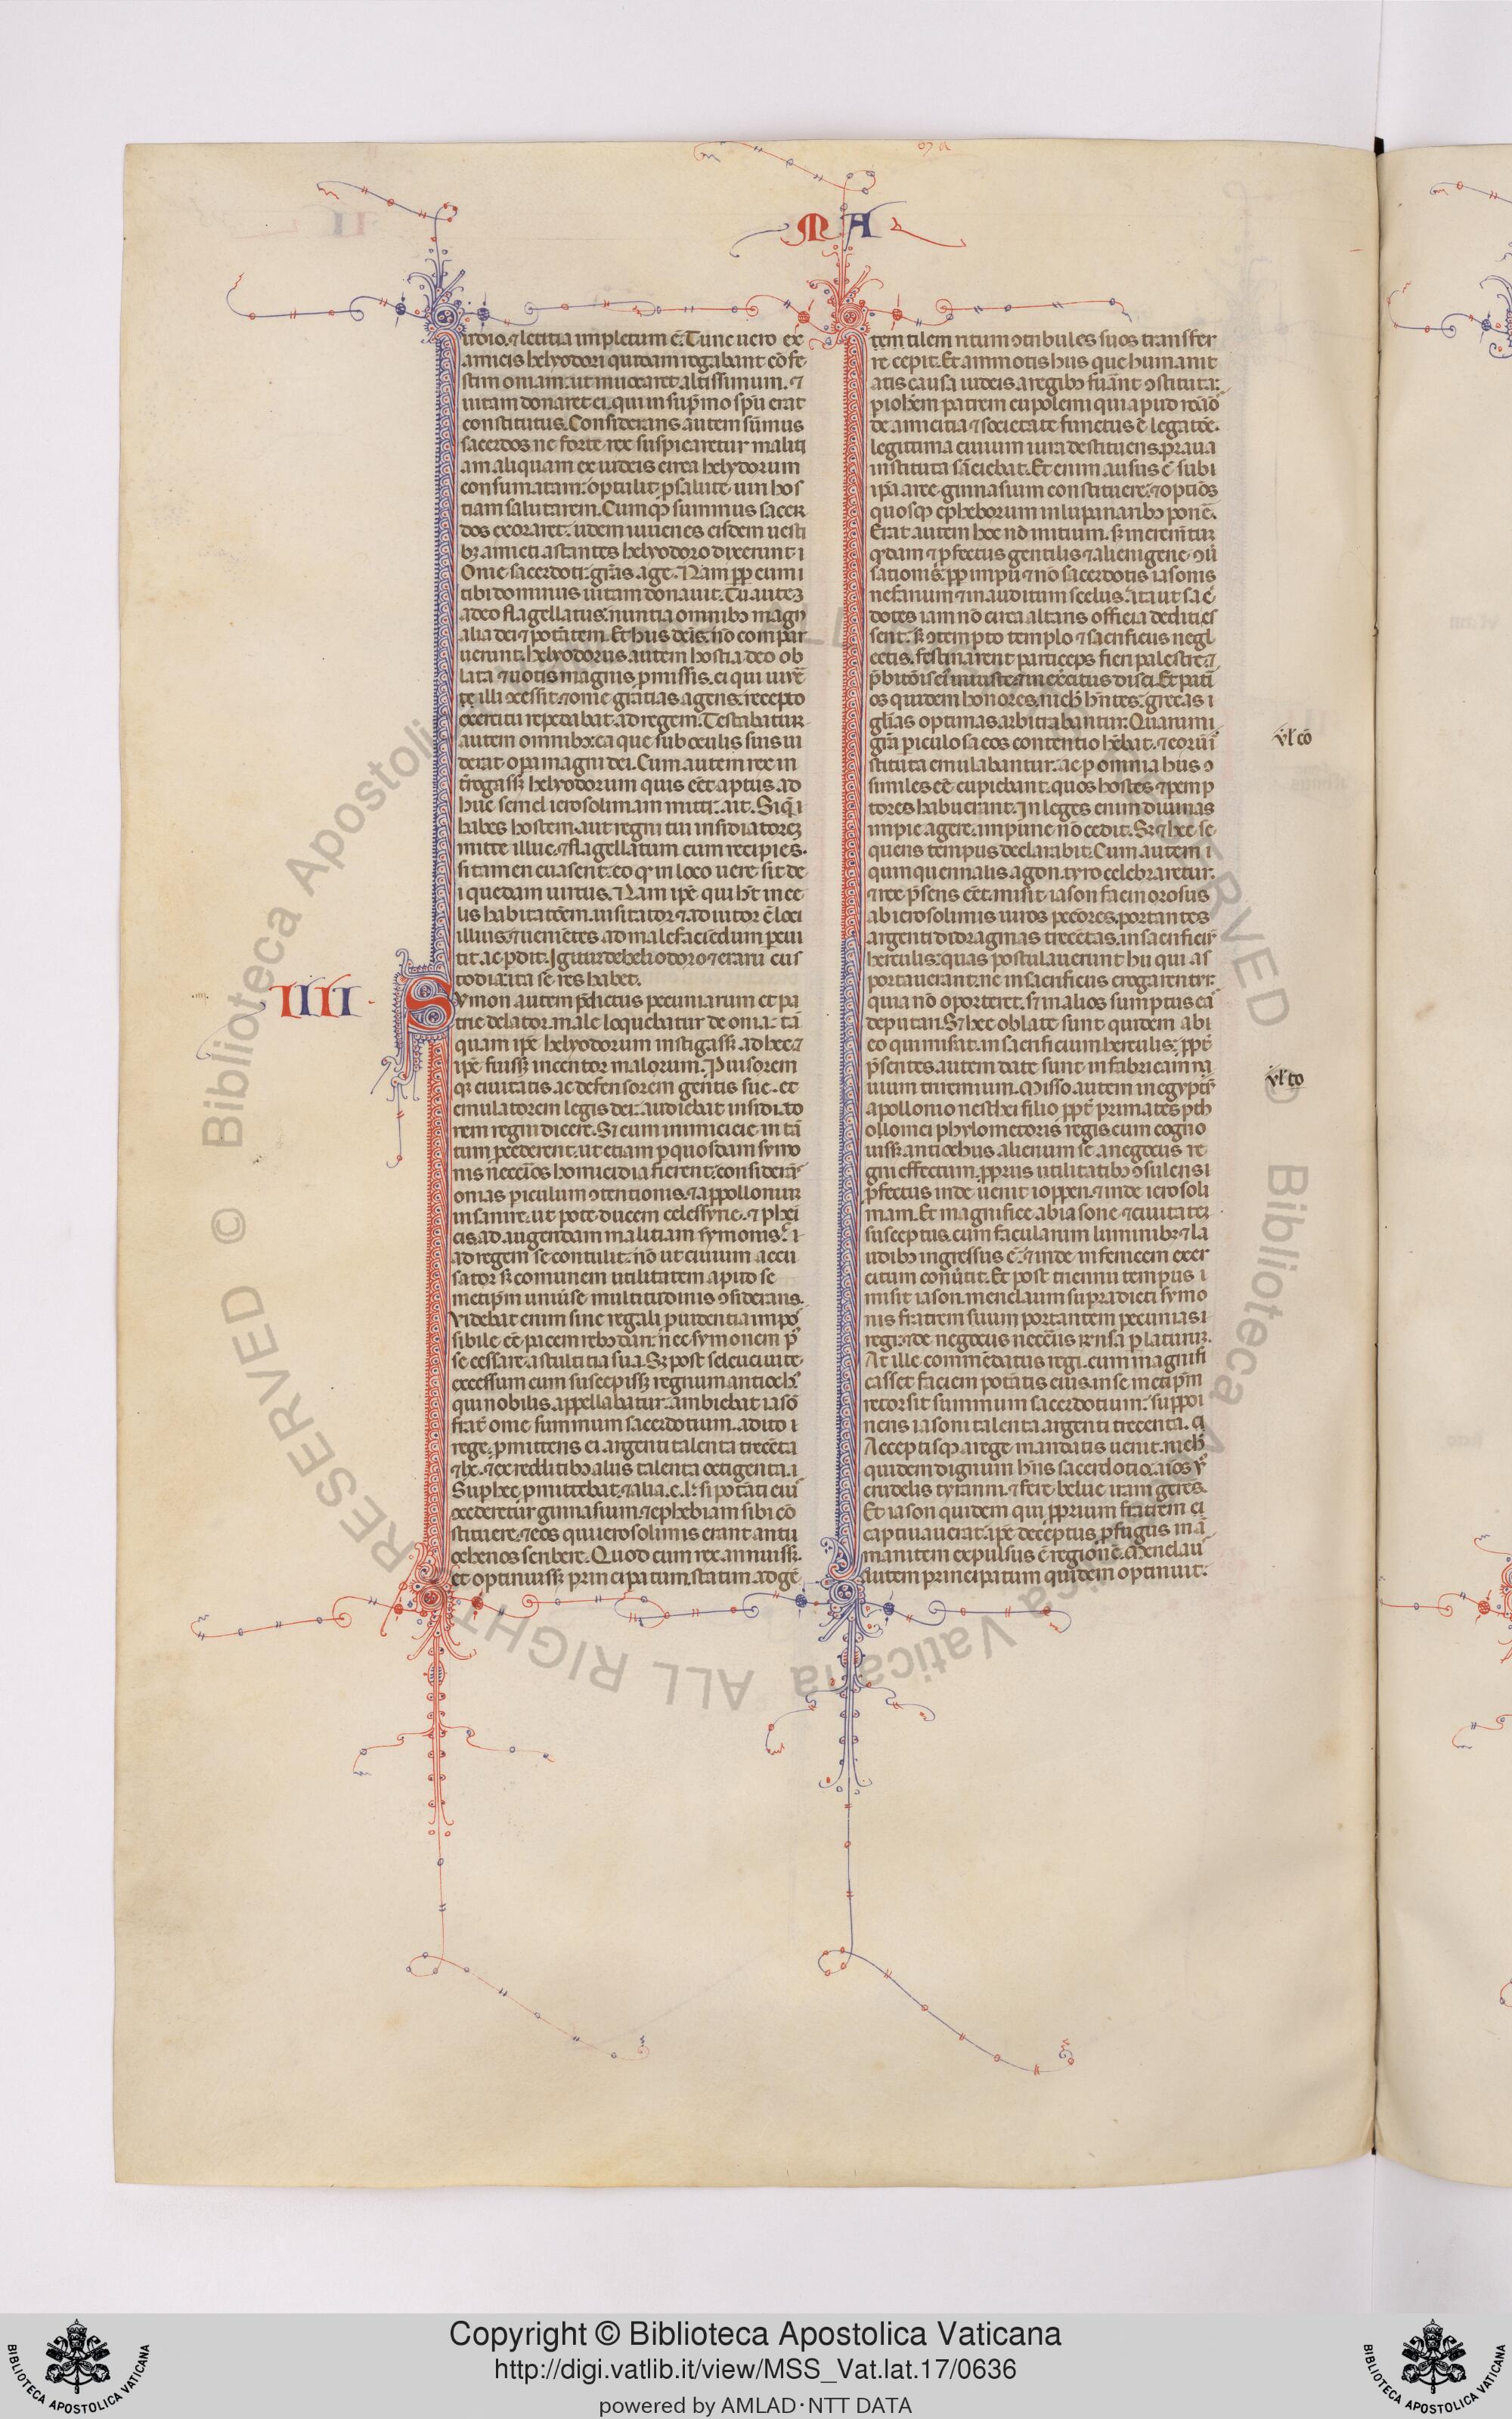 MA
urdio. ⁊ letitia impletum ē. Tunc uero ex
amicis helyodori quidam rogabant cōfe
stim oniam. ut inuocaret altissimum. ⁊
uitam donaret ei. qui in sup̄mo spū erat
constitutus. Considerans autem sūmus
sacerdos ne forte rex suspicaretur maliti
am aliquam ex iudeis circa helydorum
consumatam. optulit p salute uiri hos
tiam salutarem. Cumqꝫ summus sacer
dos exoraret. iidem iuuenes eisdem uesti
bꝫ amicti. astantes helyodoro dixerunt. i
Onie sacerdoti grās age. Nam pp eum i
tibi dominus uitam donauit. Tu autē
a deo flagellatus. nuntia omnibꝫ magn
alia dei ⁊ potātem. Et hiis dc̄is. nō compar
uerunt. helyodorus. autem hostia deo ob
lata ⁊ uotis magnis pmissis. ei qui uiue
te illi ꝯcessit. ⁊ onie gratias agens. recepto
exercitu repetabat ad regem. Testabatur
autem omnibꝫ. ea que sub oculis suis ui
derat opa magni dei. Cum autem rex in
trogassꝫ helyodorum quis eēt aptus. ad
huc semel ierosolimam mitti. ait. Si q̄ i
habes hostem. aut regni tui insidiatorē
mitte illuc. ⁊ flagellatum eum recipies.
si tamen euaserit. eo qꝫ in loco uere sit de
i quedam uirtus. Nam ipē. qui hēt in ce
lis habitatōem. uisitator ⁊ adiutor ē loci
illius. ⁊ ueniētes ad malefaciēdum pcu
tit. ac pdit. Igitur de heliodoro ⁊ erarii cus
todia. ita se res habet.
IIII
Symon autem p̄dictus pecuniarum et pa
trie delator. male loquebatur de onia. tā
quam ipē helyodorum instigassꝫ ad hec. ⁊
ipē fuissꝫ incentor malorum. Puisorem
qꝫ ciuitatis. ac defensorem gentis sue. et
emulatorem legis dei. audiebat insidiato
rem regni dicere. Sꝫ cum inimicicie in tā
tum pcederent. ut etiam p quosdam symo
nis necc̄ios homicidia fierent. considerās
onias piculum ꝯtentionis. ⁊ appollonium
insanire. ut pote ducem celessyrie. ⁊ phei
cis ad augendam malitiam symonis. i
ad regem se contulit. nō ut ciuium accu
sator. sꝫ comunem utilitatem apud se
metipm uniūse multitudinis ꝯsiderans.
Videbat enim sine regali puidentia impos
sibile eē. pacem rebꝫ dari. nec symonem p̄
se cessare. a stultitia sua. Sꝫ post seleuci uite.
excessum cum suscepissꝫ regnum antioch
qui nobilis. appellabatur. ambiebat iasō
frat̄ onie summum sacerdotium. adito i
rege. pmittens ei argenti talenta trecēta
⁊ lx. ⁊ ex redditibꝫ aliis talenta octigenta. i
Sup hec pmittebat. ⁊ alia. c. l. si potāti eiꝰ
ꝯcederetur gimnasium. ⁊ ephebiam sibi cō
stituere. ⁊ eos qui ierosolimis erant anti
ochenos scribere. Quod cum rex annuissꝫ.
et optinuissꝫ principatum. statim ad gē
tem tilem ritum ꝯtribules suos transfer
re cepit. Et ammotis hiis que humanit
atis causa iudeis a regibꝫ fuānt ꝯstituta.
p iohēm patrem eupolemi qui apud roāo
de amicitia ⁊ societate functus ē legatōe.
legittima ciuium iura destituens. praua
instituta sāciebat. Et enim ausus ē. subi
ipā arce gimnasium constituere. ⁊ optios
quosqꝫ epheborum in lupanaribꝫ ponē.
Erat autem hec nō initium. sꝫ increm̄tum
qddam ⁊ pfectus gentilis ⁊ alienigene ꝯū
sationis. pp impii ⁊ nō sacerdotis iasonis
nefarium ⁊ inauditum scelus. ita ut sac
dotes iam nō circa altaris officia dediti es
sent. sꝫ ꝯtempto templo ⁊ sacrificiis negl
ectis. festinarent particeps fieri palestre. ⁊
p̄bitōis ei iniuste. ⁊ in exercitus disci. Et patri
os quidem honores. nichil hn̄tes. grecas i
glīas optimas arbitrabantur. Quarum i
grā piculosa eos contentio hēbat. ⁊ eorū ī
stituta emulabantur. ac p omnia hiis ꝯ
similes eē cupiebant. quos hostes ⁊ pemp
tores habuerant. In leges enim diuinas
impie agere. impune nō cedit. Sꝫ ⁊ hec se
quens tempus declarabit. Cum autem i
quinquennalis agon. tyro celebraretur.
⁊ rex p̄sens eēt. misit iason facinorosus
ab ierosolimis uiros pccōres. portantes
argenti didragmas trecētas. in sacrificiū
herculis. quas postulauerunt hii qui as
portauerant. ne in sacrificiis erogarentur.
quia nō oporteret. sꝫ in alios sumptus eā
deputari. Sꝫ hec oblate sunt quidem ab i
eo qui miserat. in sacrificium herculis. ppt̄
p̄sentes. autem date sunt in fabricam na
uium triremium. Misso autem in egyptū
apollonio nesthei filio ppt̄ primates pth
olomei phylometoris regis. cum cogno
uissꝫ antiochus alienum se a negociis re
gni effectum. ppriis utilitatibꝫ ꝯsulens i
pfectus inde uenit ioppen. ⁊ inde ierosoli
mam. Et magnifice ab iasone ⁊ ciuitate
susceptus. cum facularum luminibꝫ ⁊ la
udibꝫ ingressus ē. ⁊ inde in fenicem exer
citum conūtit. Et post triennii tempus i
misit iason. menelaum supradicti symo
nis fratrem suum portantem pecunias i
regi. ⁊ de negociis necc̄iis rensa platurum.
At ille commēdatus regi. cum magnifi
casset faciem potātis eius. in se metipm
retorsit summum sacerdotium. suppoi
nens iasoni talenta argenti trecenta. q
Acceptisqꝫ a rege mandatis uenit. nichil
quidem dignum hn̄s sacerdotio. aīos ꝟ
crudelis tyranni. ⁊ fere belue iram gerēs.
Et iason quidem qui pprium fratrem ei
captiuauerat. ipē deceptus pfugus in ā
manitem expulsus ē regionē. Menelauꝰ
autem principatum quidem optinuit.
Copyright © Biblioteca Apostolica Vaticana
http://digi.vatlib.it/view/MSS_Vat.lat.17/0636
powered by AMLAD·NTT DATA
BIBLIOTECA APOSTOLICA VATICANA
BIBLIOTECA APOSTOLICA VATICANA